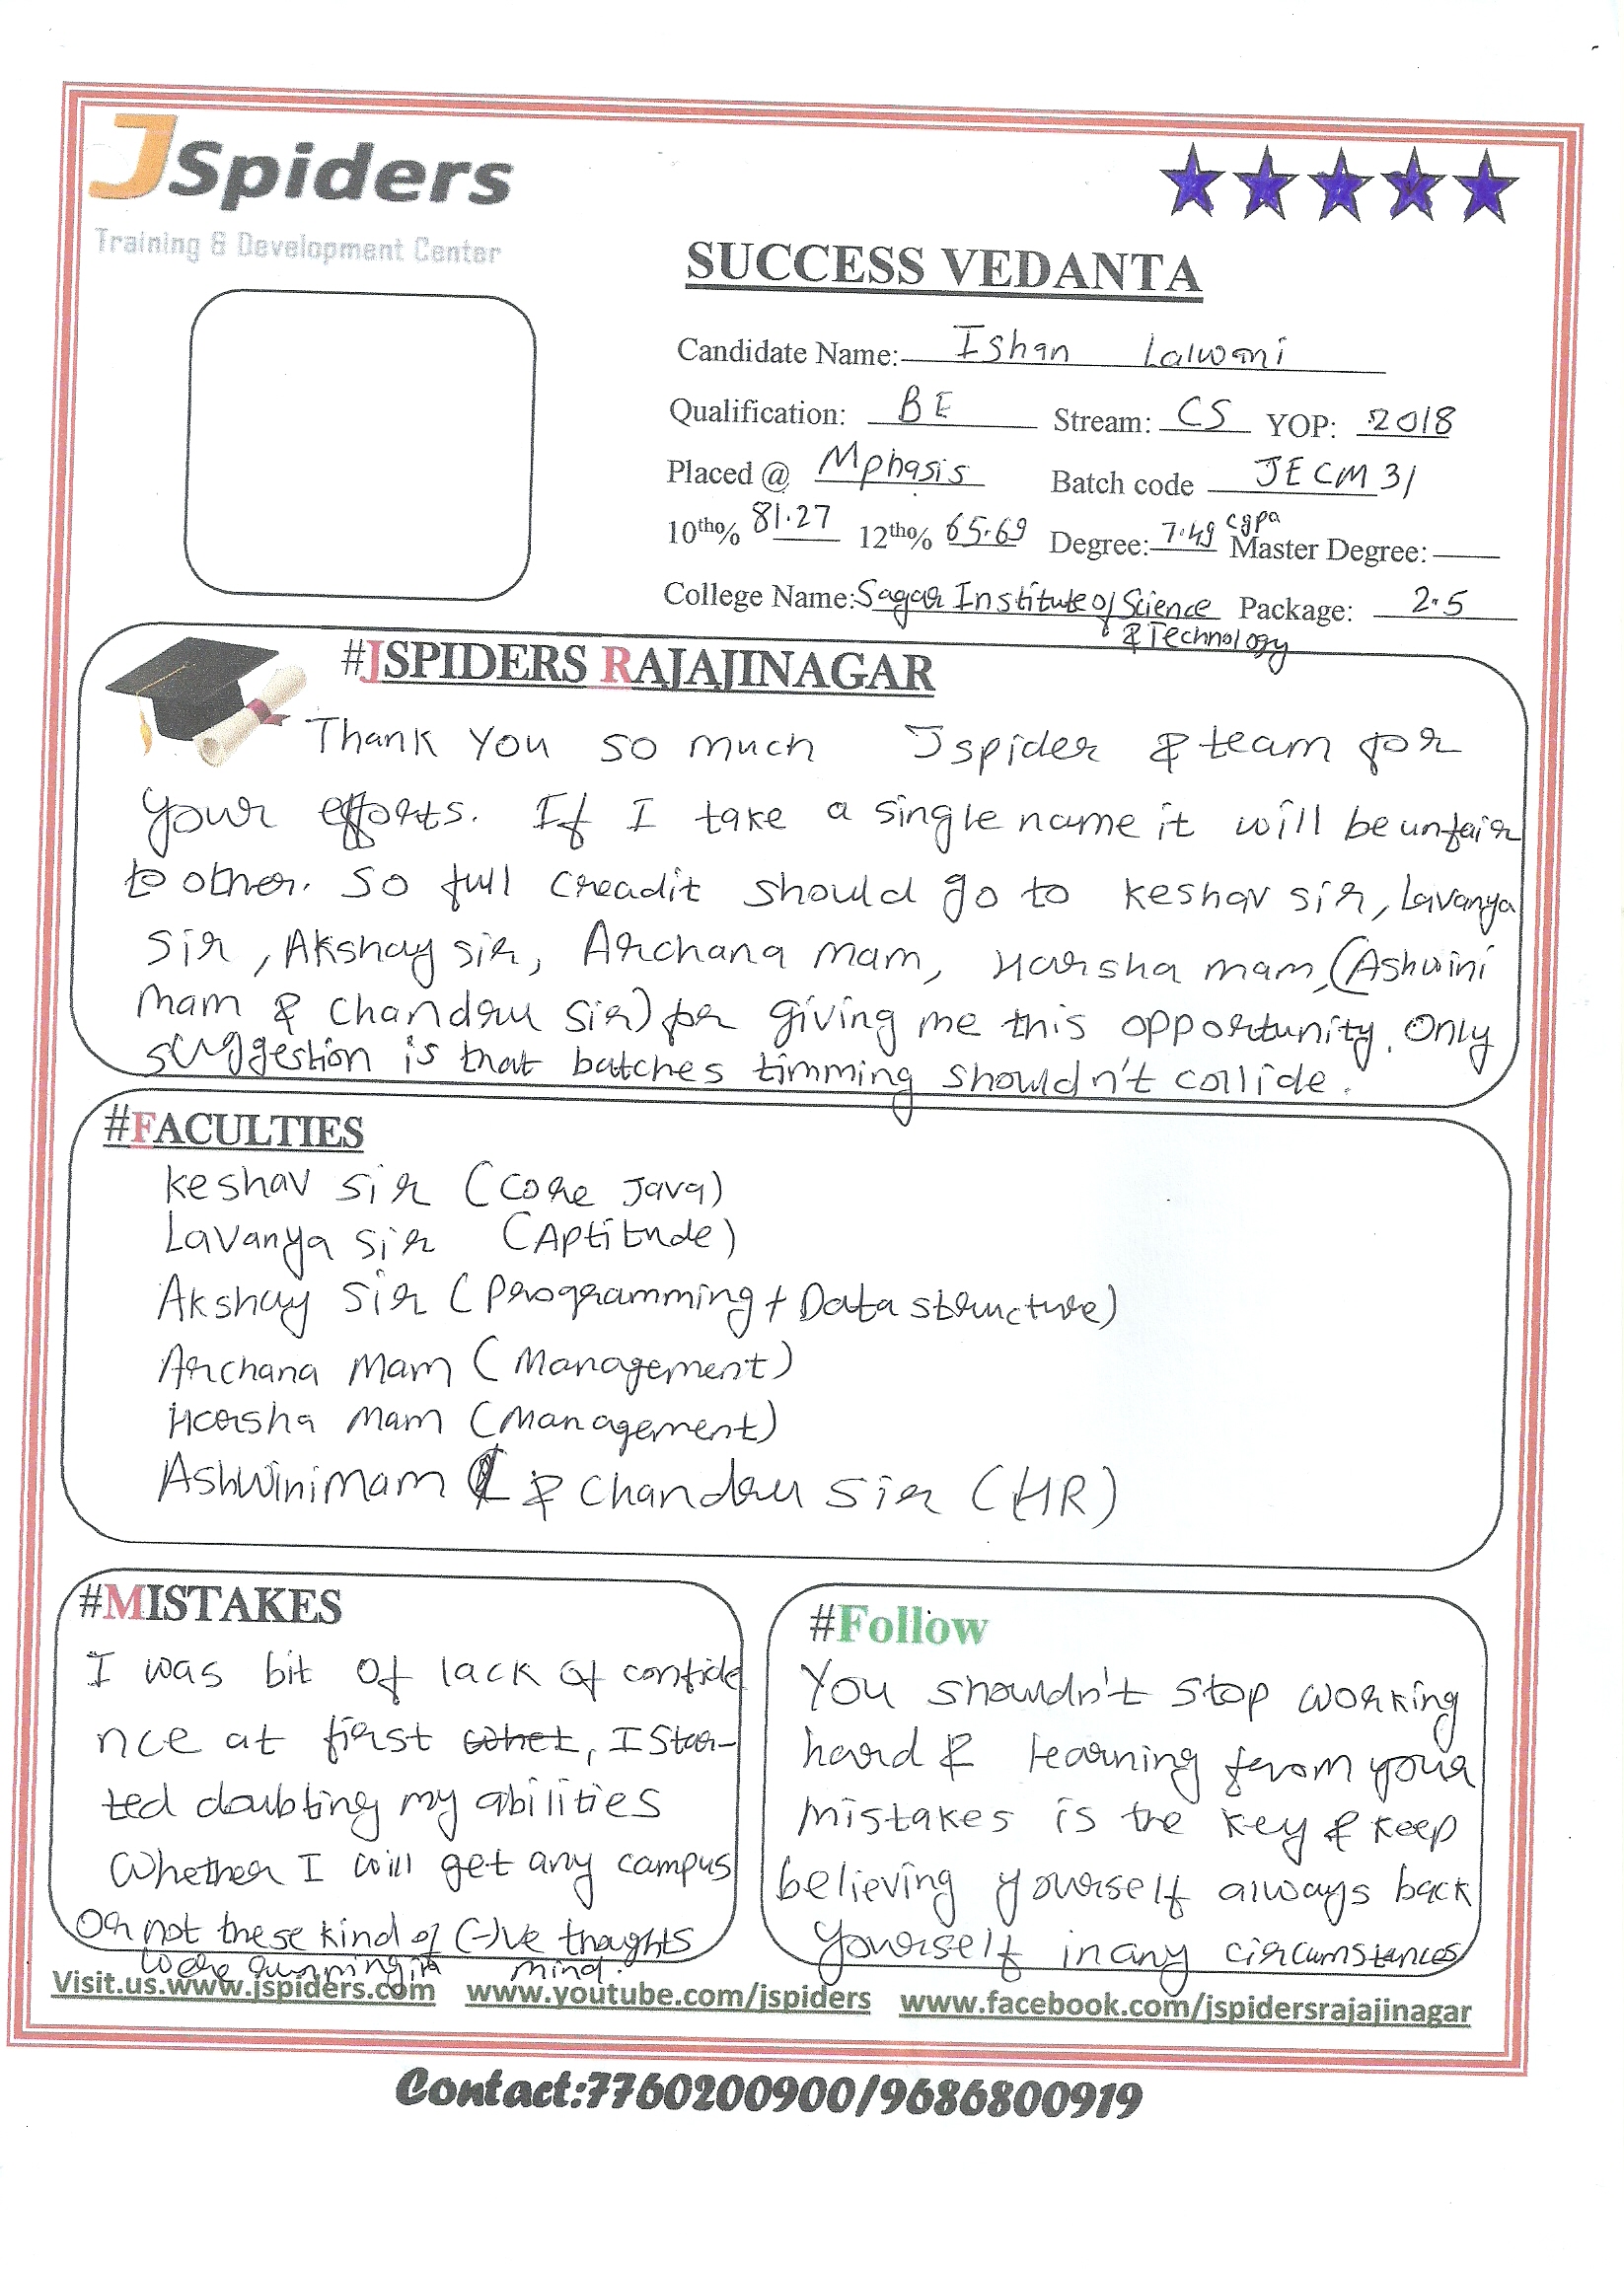 JSpiders
Training & Development Center
SUCCESS VEDANTA
Candidate Name: Ishan Lalwani
Qualification: BE Stream: CS YOP: 2018
Placed @ Mphasis Batch code JECM31
10th% 81.27 12th% 65.69 Degree: 7.49 cgpa Master Degree:
College Name: Sagar Institute of Science Package: 2.5
& Technology
#JSPIDERS RAJAJINAGAR
Thank You so much Jspider & team for
your efforts. If I take a single name it will be unfair
to other. So full creadit should go to keshav sir, Lavanya
Sir, Akshay sir, Archana mam, Harsha mam, (Ashwini
mam & Chandru sir) for giving me this opportunity. Only
suggestion is that batches timming shouldn't collide.
#FACULTIES
keshav sir (core Java)
Lavanya sir (Aptitude)
Akshay Sir (Programming + Data structure)
Archana Mam (Management)
Harsha Mam (Management)
Ashwini Mam & Chandru Sir (HR)
#MISTAKES
I was bit of lack of confide
nce at first whet, I star-
ted doubting my abilities
Whether I will get any campus
Or not these kind of (-)ve thoughts
were running in mind.
#Follow
You shouldn't stop working
hard & learning from your
mistakes is the key & keep
believing yourself always back
yourself in any circumstances
Visit.us.www.jspiders.com www.youtube.com/jspiders www.facebook.com/jspidersrajajinagar
Contact:7760200900/9686800919